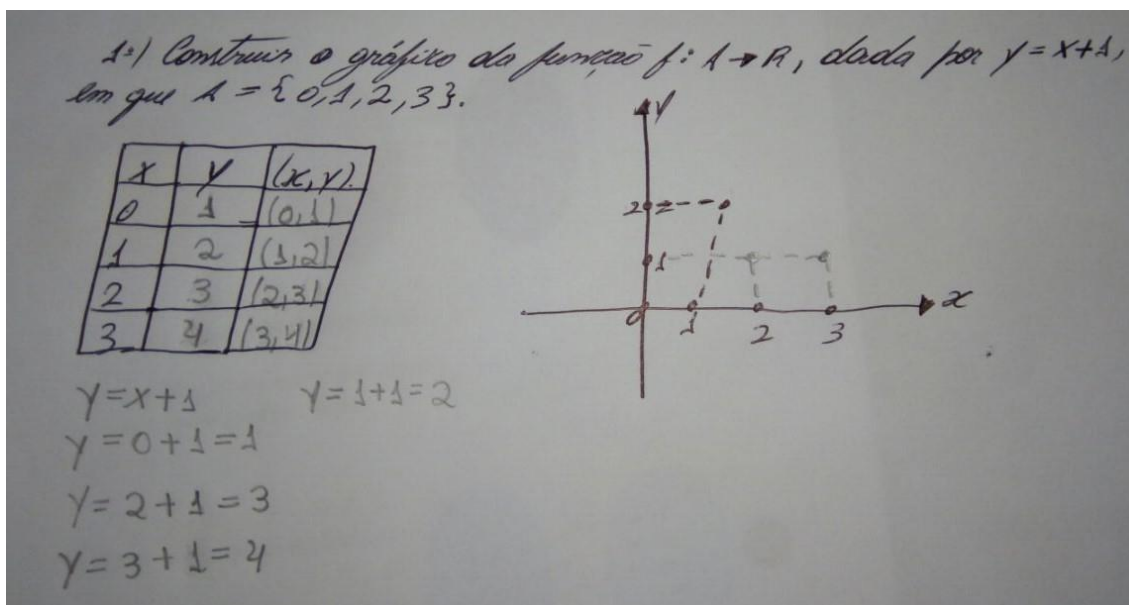 1º) Construir o gráfico da função f: A → R, dada por y = x+1,
em que A = {0,1,2,3}.
x y (x,y).
0 1 (0,1)
1 2 (1,2)
2 3 (2,3)
3 4 (3,4)
y
2
1
0 1 2 3 x
y=x+1 y=1+1=2
y=0+1=1
y=2+1=3
y=3+1=4